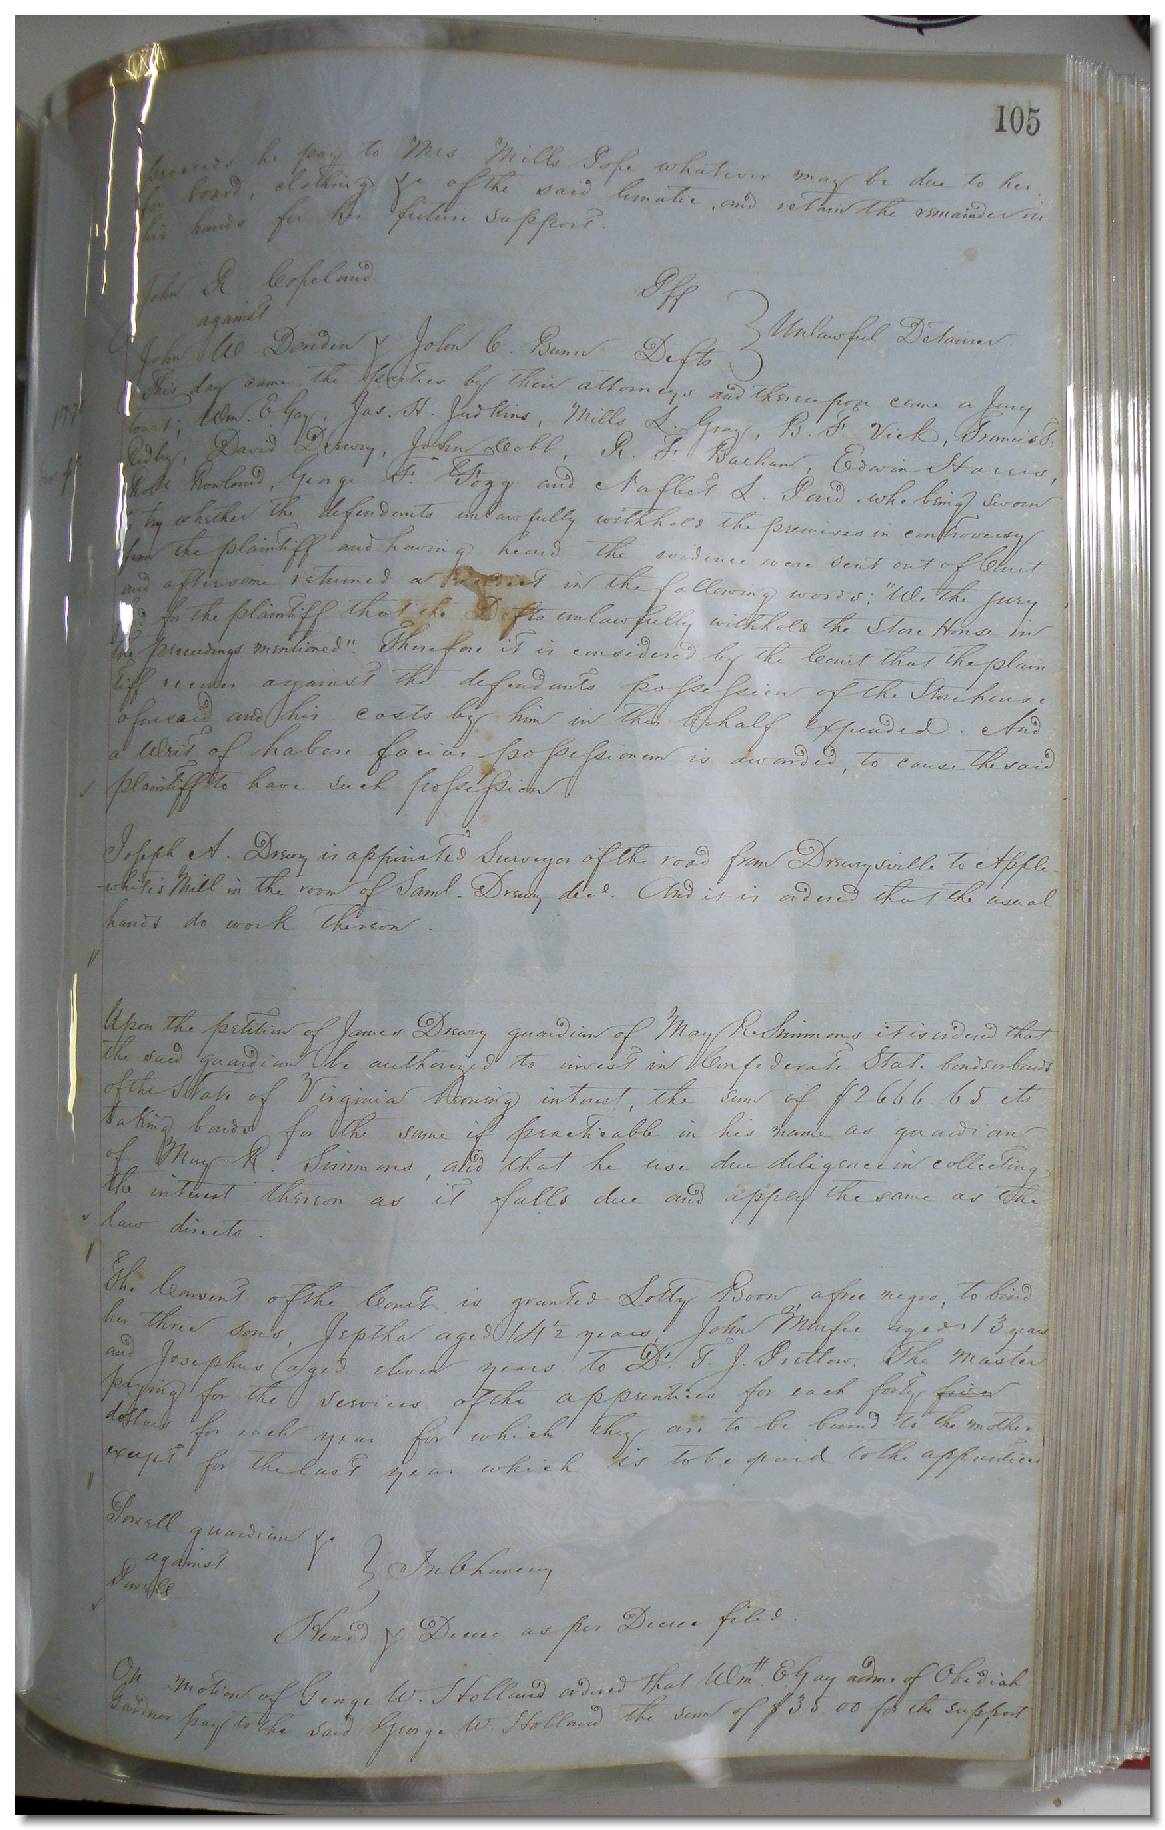 105
he pay to Mrs. Mills Pope whatever may be due to her
for board, clothing &c of the said lunatic, and retain the remainder in
his hands for her future support.
John R Copeland Plff
against } Unlawful Detainer
John W & John C. Defts
This day came the parties by their attorneys and thereupon came a Jury
towit; Wm. E. Gay, Jas. H. Judkins, Mills L. Gray, B. F. Vick, Francis
Ridley, David Drewry, John Cobb, R. F. Barham, Edwin Harris,
Rowland, George F. Fogg and L. who being sworn
to try whether the defendants unlawfully withhold the premises in controversy
from the plaintiff and having heard the evidence were sent out of Court
and after some returned a verdict in the following words; "We the jury
find for the plaintiff that the Defts unlawfully withhold the Store House in
the proceedings mentioned". Therefore it is considered by the Court that the plain
tiff recover against the defendants possession of the Storehouse
aforesaid and his costs by him in this behalf expended. And
a writ of habere facias possessionem is awarded, to cause the said
plaintiff to have such possession.
Joseph A. Drewry is appointed Surveyor of the road from Drewrysville to Apple-
white's Mill in the room of Saml. Drewry decd. And it is ordered that the usual
hands do work thereon.
Upon the petition of James Drewry guardian of Mary R. Simmons it is ordered that
the said guardian be authorized to invest in Confederate State bonds or bonds
of the State of Virginia bearing interest, the sum of $2666 65 cts
taking bonds for the same if practicable in his name as guardian
of Mary R. Simmons, and that he use due diligence in collecting
the interest thereon as it falls due and apply the same as the
law directs.
The Consent of the Court is granted Lotty Boon, a free negro, to bind
her three sons, Jeptha aged 14½ years, John aged 13 years
and Josephus aged eleven years to Dr. T. J. Pretlow. The master
paying for the services of the apprentices for each forty five
dollars for each year for which they are to be bound to the mother
except for the last year which is to be paid to the apprentices
Powell guardian &c
against } In Chancery
Powell
Heard & Decree as per Decree filed.
On motion of George W. Holland ordered that Wm. E Gay admr of Obediah
Gardner pay to the said George W. Holland the sum of $35.00 for the support